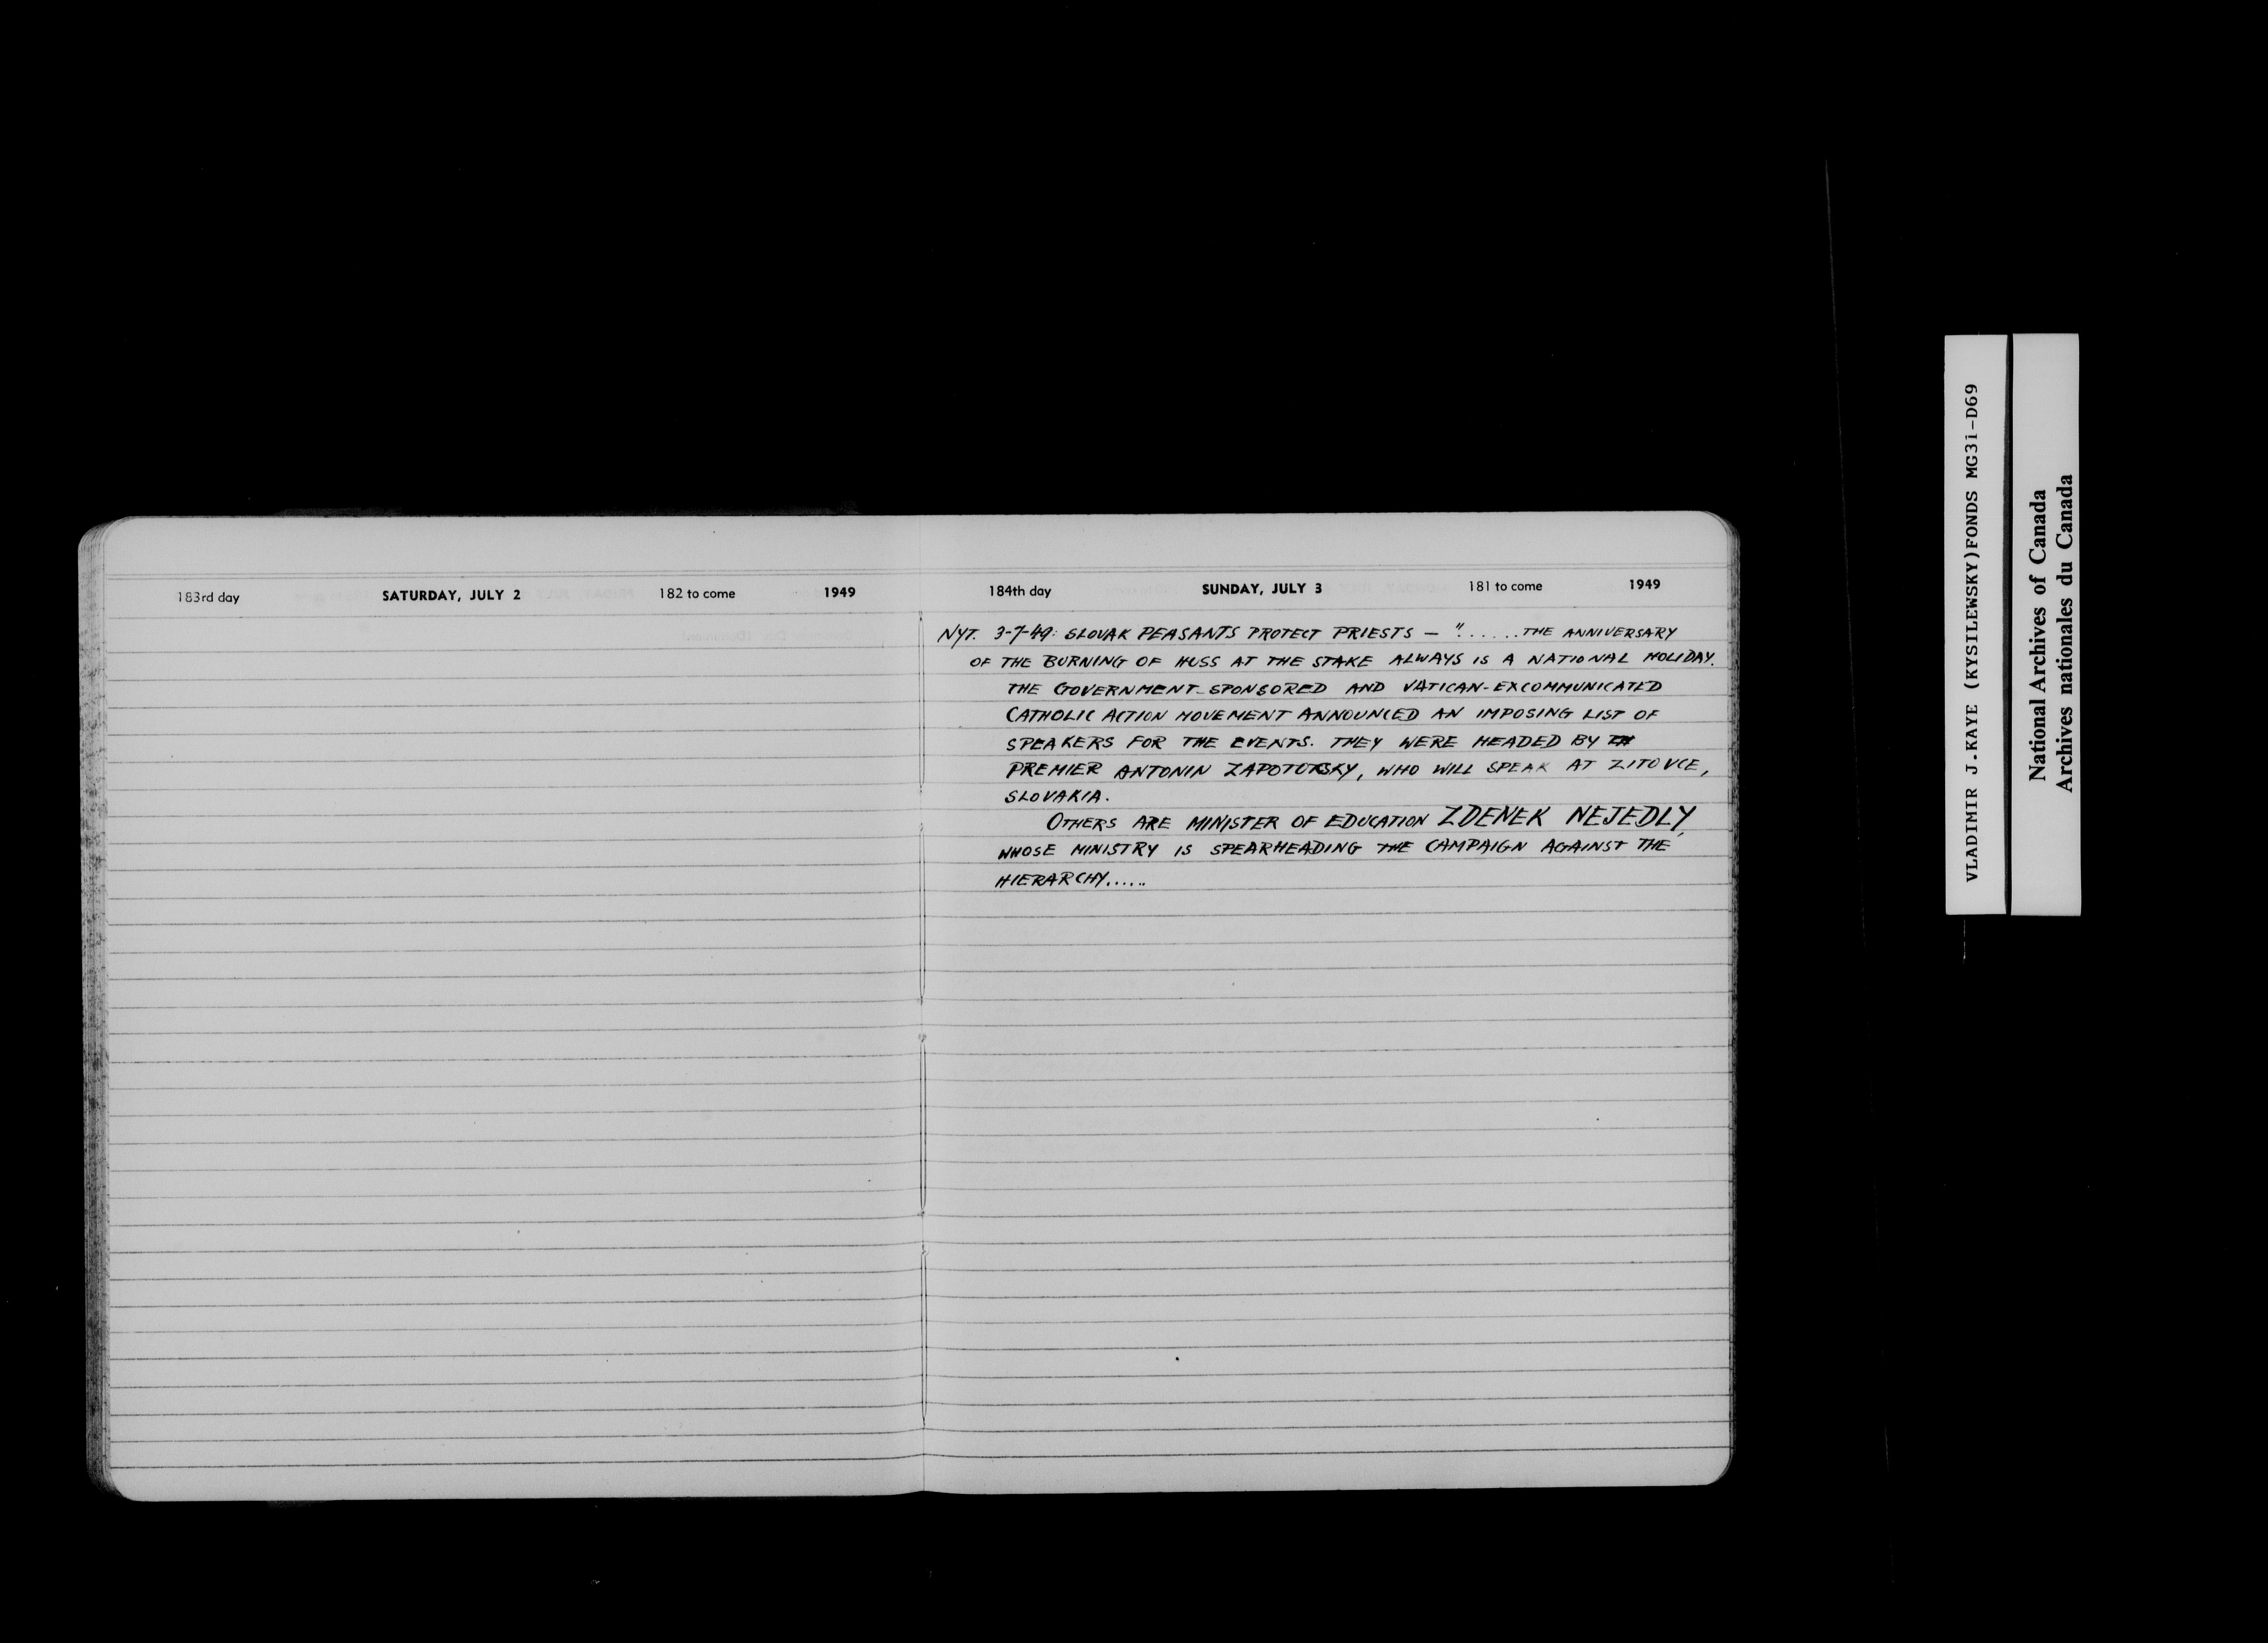 183rd day SATURDAY, JULY 2 182 to come 1949
184th day SUNDAY, JULY 3 181 to come 1949
NYT. 3-7-49: SLOVAK PEASANTS PROTECT PRIESTS — "......THE ANNIVERSARY
OF THE BURNING OF HUSS AT THE STAKE ALWAYS IS A NATIONAL HOLIDAY.
THE GOVERNMENT-SPONSORED AND VATICAN-EXCOMMUNICATED
CATHOLIC ACTION MOVEMENT ANNOUNCED AN IMPOSING LIST OF
SPEAKERS FOR THE EVENTS. THEY WERE HEADED BY
PREMIER ANTONIN ZAPOTOTSKY, WHO WILL SPEAK AT ZITOVCE,
SLOVAKIA.
OTHERS ARE MINISTER OF EDUCATION ZDENEK NEJEDLY,
WHOSE MINISTRY IS SPEARHEADING THE CAMPAIGN AGAINST THE
HIERARCHY......
VLADIMIR J.KAYE (KYSILEWSKY)FONDS MG31-D69
National Archives of Canada
Archives nationales du Canada